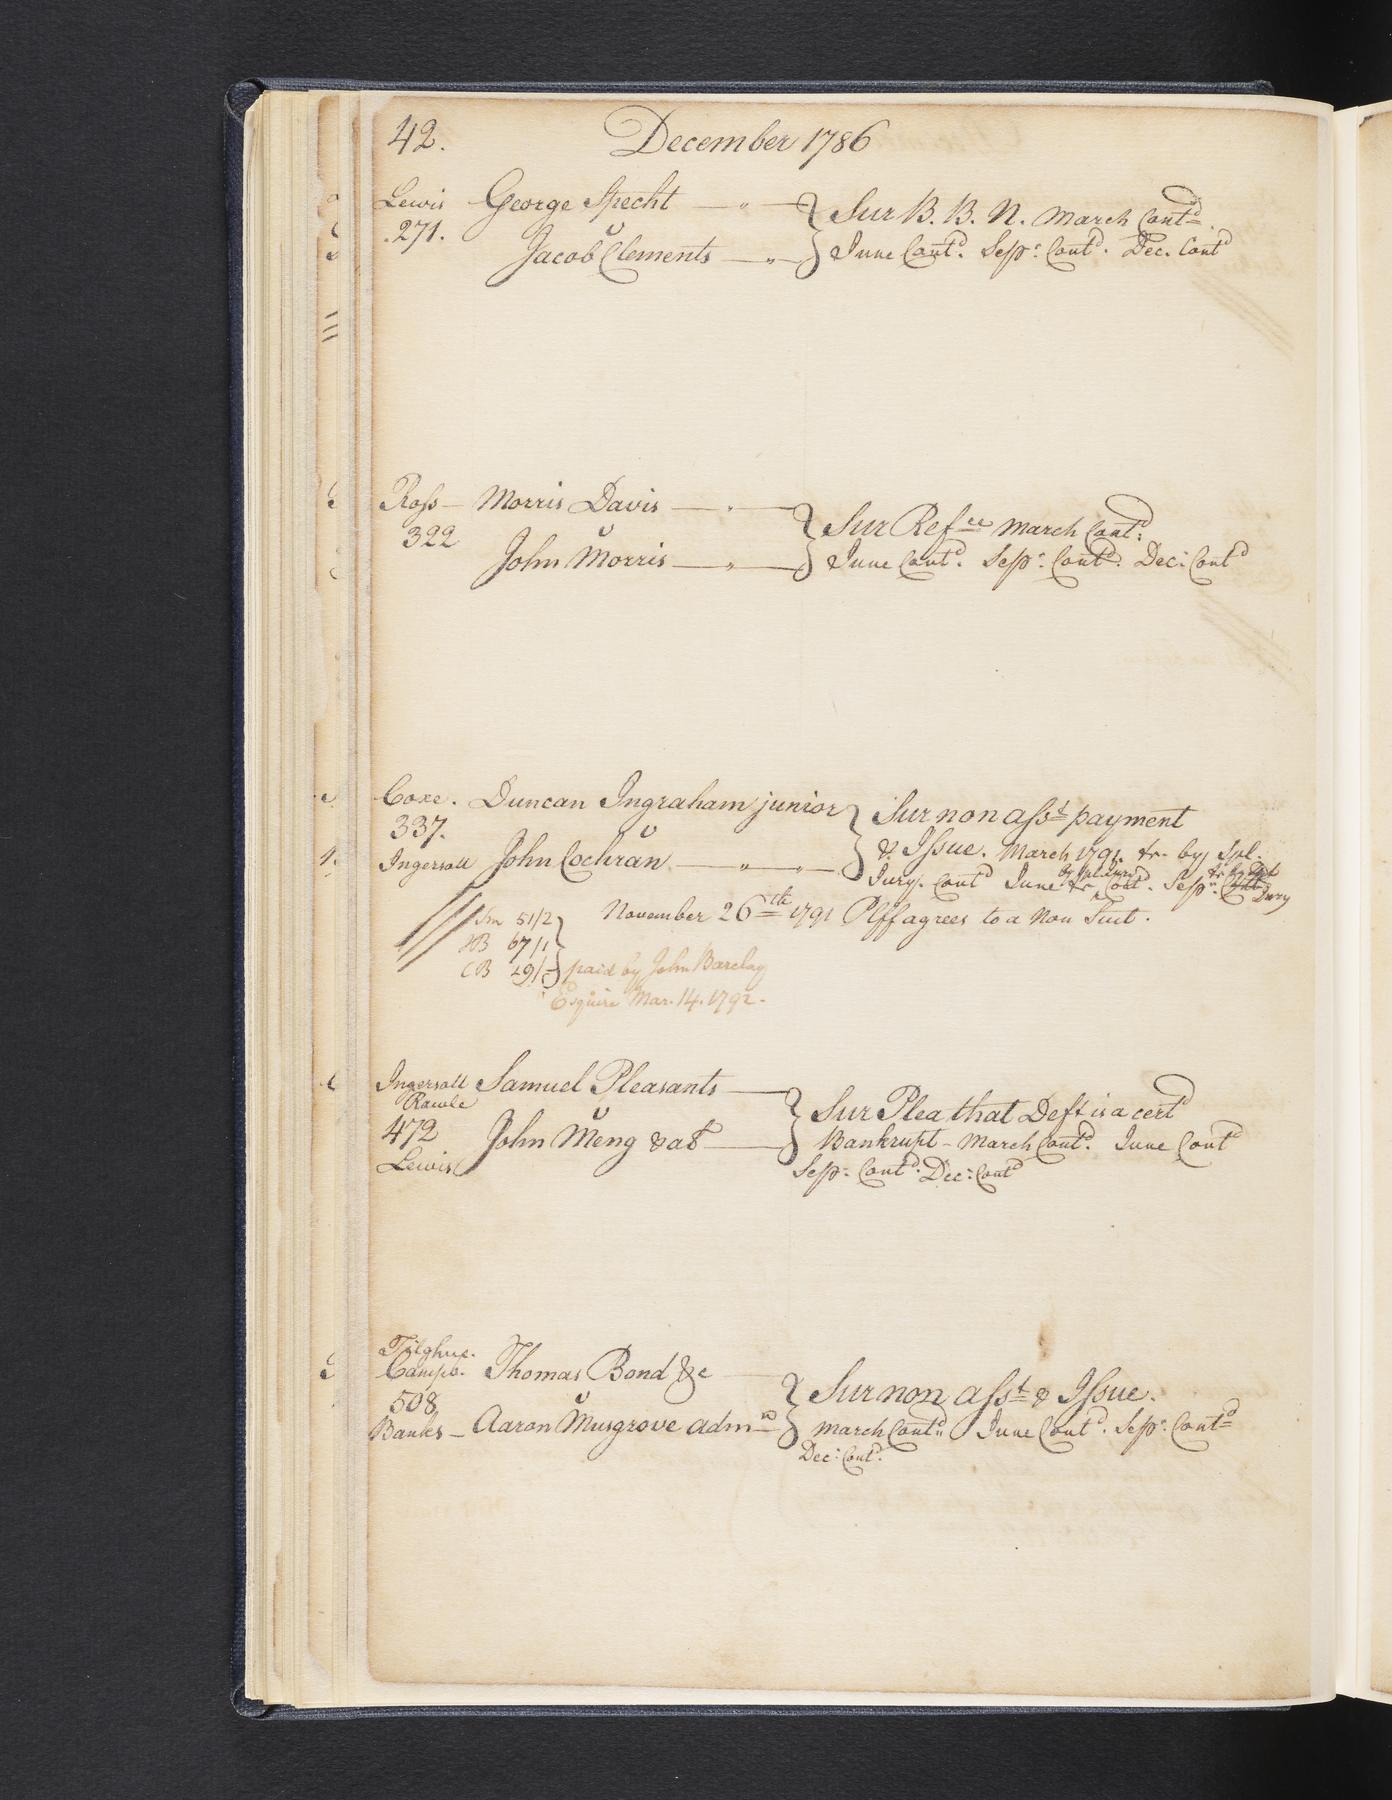 42. December 1786
Lewis George Specht — " — } Sur B. B. N. March Contd.
271. v
Jacob Clements — " — } June Contd. Sepr. Contd. Dec. Contd
Ross — Morris Davis — " — } Sur Refce March Contd:
322 v
John Morris — " — } June Contd. Sepr. Contd. Dec: Contd
Coxe. Duncan Ingraham junior } Sur non asst payment
337. v
& Issue. March 1791. tr. by Spl.
Ingersoll John Cochran — " — " — }
Jury. Contd June tr by Spl Jury Contd. Sepr. tr by Spl Jury
November 26th 1791 Plff agrees to a Non Suit.
Sm 51/2
HB 67/1
CB 29/- } paid by John Barclay
Esquire Mar. 14. 1792.
Ingersoll Samuel Pleasants — } Sur Plea that Deft is a certd
Rawle
472 v
John Meng & al — } Bankrupt - March Contd. June Contd
Lewis
Sepr: Contd. Dec: Contd
Tilghn.
Camps. Thomas Bond &c — } Sur non asst & Issue.
508 v
Banks — Aaron Musgrove Adm } March Contd. June Contd. Sepr. Contd
Dec: Contd.